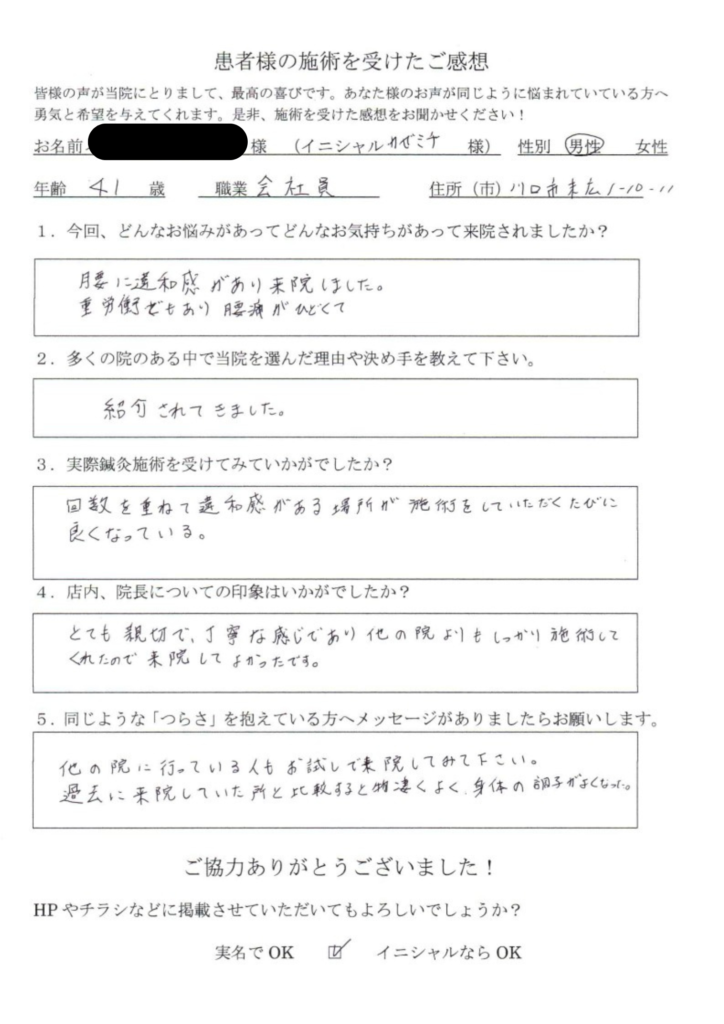 患者様の施術を受けたご感想
皆様の声が当院にとりまして、最高の喜びです。あなた様のお声が同じように悩まれていている方へ
勇気と希望を与えてくれます。是非、施術を受けた感想をお聞かせください！
お名前 様 （イニシャル カゼミチ 様） 性別 男性 女性
年齢 41 歳 職業 会社員 住所（市）川口市末広1-10-11
１．今回、どんなお悩みがあってどんなお気持ちがあって来院されましたか？
腰に違和感があり来院しました。
重労働でもあり腰痛がひどくて
２．多くの院のある中で当院を選んだ理由や決め手を教えて下さい。
紹介されてきました。
３．実際鍼灸施術を受けてみていかがでしたか？
回数を重ねて違和感がある場所が施術をしていただくたびに
良くなっている。
４．店内、院長についての印象はいかがでしたか？
とても親切で、丁寧な感じであり他の院よりもしっかり施術して
くれたので来院してよかったです。
５．同じような「つらさ」を抱えている方へメッセージがありましたらお願いします。
他の院に行っている人もお試しで来院してみて下さい。
過去に来院していた所と比較すると物凄くよく、身体の調子がよくなった。
ご協力ありがとうございました！
HPやチラシなどに掲載させていただいてもよろしいでしょうか？
実名でOK ☑ イニシャルならOK